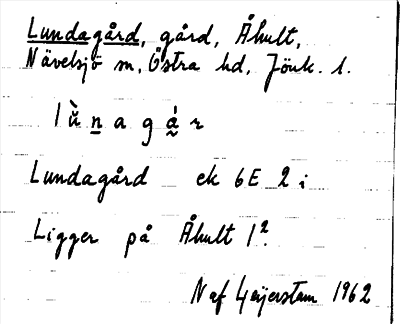 Lundagård, gård, Åhult,
Nävelsjö sn, Östra hd, Jönk. l.
lùnagár
Lundagård ek 6E 2 i
Ligger på Åhult 1².
N af Geijerstam 1962